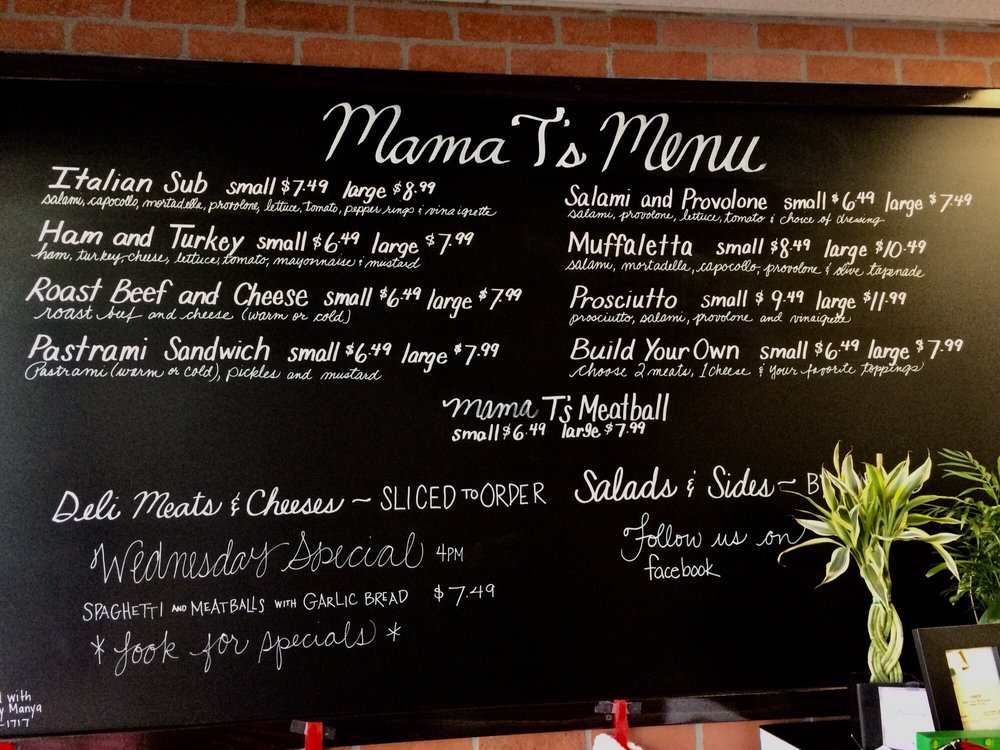 Mama T's Menu
Italian Sub small $7.49 large $8.99
salami, capocollo, mortadella, provolone, lettuce, tomato, pepper rings & vinaigrette
Ham and Turkey small $6.49 large $7.99
ham, turkey, cheese, lettuce, tomato, mayonnaise & mustard
Roast Beef and Cheese small $6.49 large $7.99
roast beef and cheese (warm or cold)
Pastrami Sandwich small $6.49 large $7.99
Pastrami (warm or cold), pickles and mustard
Salami and Provolone small $6.49 large $7.49
salami, provolone, lettuce, tomato & choice of dressing
Muffaletta small $8.49 large $10.49
salami, mortadella, capocollo, provolone & olive tapenade
Prosciutto small $9.49 large $11.99
prosciutto, salami, provolone and vinaigrette
Build Your Own small $6.49 large $7.99
choose 2 meats, 1 cheese & your favorite toppings
mama T's Meatball
small $6.49 large $7.99
Deli Meats & Cheeses ~ SLICED TO ORDER
Wednesday Special 4PM
SPAGHETTI AND MEATBALLS WITH GARLIC BREAD $7.49
* Look for specials *
Salads & Sides ~
Follow us on
facebook
with
Manya
-1717